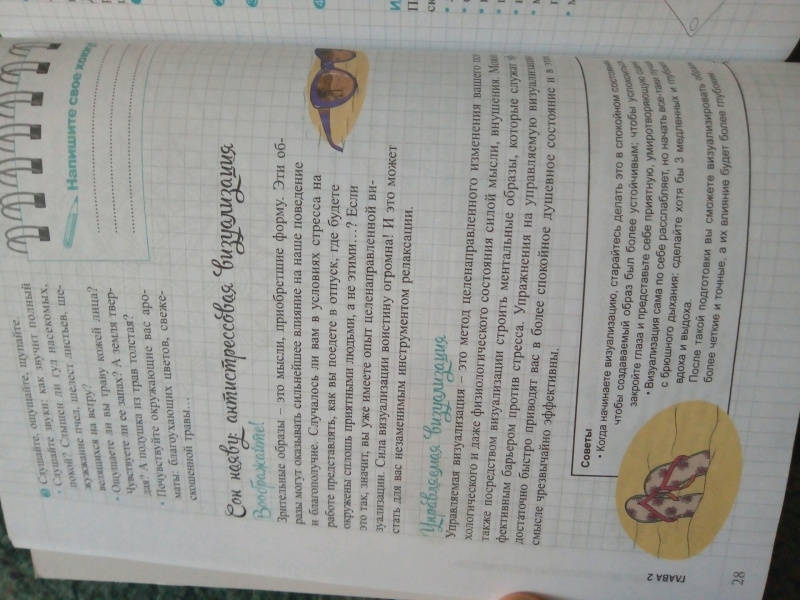 ❷ Слушайте, ощущайте, щупайте
• Слушайте звуки: как звучит полный
покой? Слышен ли гул насекомых,
жужжание пчел, шелест листьев, ше-
велящихся на ветру?
• Ощущаете ли вы траву кожей лица?
Чувствуете ли ее запах? А земля твер-
дая? А подушка из трав толстая?
• Почувствуйте окружающие вас аро-
маты: благоухающих цветов, свеже-
скошенной травы…
Напишите свое
Сон наяву: антистрессовая визуализация
Воображайте!
Зрительные образы – это мысли, приобретшие форму. Эти об-
разы могут оказывать сильнейшее влияние на наше поведение
и благополучие. Случалось ли вам в условиях стресса на
работе представлять, как вы поедете в отпуск, где будете
окружены сплошь приятными людьми, а не этими…? Если
это так, значит, вы уже имеете опыт целенаправленной ви-
зуализации. Сила визуализации воистину огромна! И это может
стать для вас незаменимым инструментом релаксации.
Управляемая визуализация
Управляемая визуализация – это метод целенаправленного изменения вашего
хологического и даже физиологического состояния силой мысли, внушения.
также посредством визуализации строить ментальные образы, которые служат
фективным барьером против стресса. Упражнения на управляемую визуализацию
достаточно быстро приводят вас в более спокойное душевное состояние и в
смысле чрезвычайно эффективны.
Советы
• Когда начинаете визуализацию, старайтесь делать это в спокойном
чтобы создаваемый образ был более устойчивым; чтобы
закройте глаза и представьте себе приятную, умиротворяющую
• Визуализация сама по себе расслабляет, но начать все-таки
с брюшного дыхания: сделайте хотя бы 3 медленных и
вдоха и выдоха.
После такой подготовки вы сможете визуализировать
более четкие и точные, а их влияние будет более глубоким.
28
ГЛАВА 2